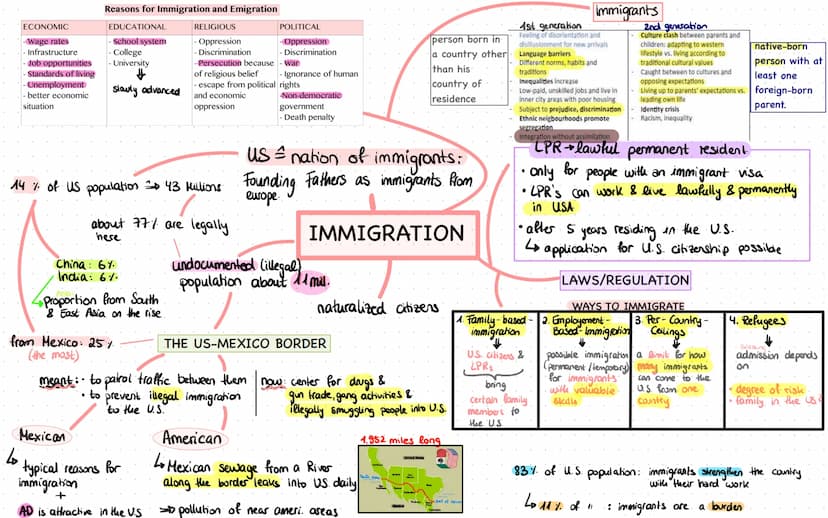 Reasons for Immigration and Emigration
ECONOMIC
- Wage rates
- Infrastructure
- Job opportunities
- Standards of living
- Unemployment
- better economic
situation
EDUCATIONAL
- School system
- College
- University
slowly advanced
RELIGIOUS
- Oppression
- Discrimination
- Persecution because
of religious belief
- escape from political
and economic
oppression
POLITICAL
- Oppression
- Discrimination
- War
- Ignorance of human
rights
- Non-democratic
government
- Death penalty
Immigrants
person born in
a country other
than his
country of
residence
1st generation
Feeling of disorientation and
disillusionment for new arrivals
Language barriers
Different norms, habits and
traditions
Inequalities increase
Low-paid, unskilled jobs and live in
inner city areas with poor housing
Subject to prejudice, discrimination
Ethnic neighbourhoods promote
segregation
Integration without assimilation
2nd generation
Culture clash between parents and
children: adapting to western
lifestyle vs. living according to
traditional cultural values
Caught between to cultures and
opposing expectations
Living up to parents' expectations vs.
leading own life
Identity crisis
Racism, inequality
native-born
person with at
least one
foreign-born
parent.
US ≙ nation of immigrants:
Founding Fathers as immigrants from
europe
14 % of US population ⇒ 43 Millions
about 77% are legally
here
China: 6%
India: 6%
↳ proportion from South
& East Asia on the rise
undocumented (illegal)
population about 11 mil.
IMMIGRATION
naturalized citizens
LPR → lawful permanent resident
• only for people with an immigrant visa
• LPR's can work & live lawfully & permanently
in USA
• after 5 years residing in the U.S.
↳ application for U.S. citizenship possible
LAWS/REGULATION
WAYS TO IMMIGRATE
1. Family-based-
immigration
U.S. citizens &
LPRs
bring
certain family
members to
the U.S.
2. Employment-
Based-Immigration
possible immigration
(permanent/temporary)
for immigrants
with valuable
skills
3. Per-Country-
Ceilings
a limit for how
many immigrants
can come to the
U.S. from one
country
4. Refugees
admission depends
on
• degree of risk
• family in the US
from Mexico: 25 %
(the most)
THE US-MEXICO BORDER
meant: • to patrol traffic between them
• to prevent illegal immigration
to the U.S.
now: center for drugs &
gun trade, gang activities &
illegally smuggling people into U.S.
Mexican
↳ typical reasons for
immigration
+
AD is attractive in the US
American
↳ Mexican sewage from a River
along the border leaks into US daily
⇒ pollution of near ameri. areas
1.952 miles long
83% of U.S. population: immigrants strengthen the country
with their hard work
↳ 11% of " : immigrants are a burden